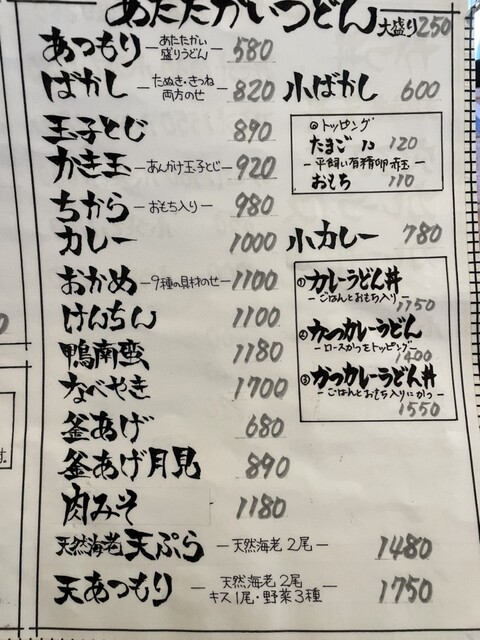 あたたかいうどん 大盛り250
あつもり ―あたたかい盛りうどん― 580
ばかし ―たぬき・きつね両方のせ― 820
小ばかし 600
玉子とじ 890
かき玉 ―あんかけ玉子とじ― 920
◎トッピング
たまご 120
―平飼い有精卵 赤玉―
おもち 110
ちから ―おもち入り― 980
カレー 1000
小カレー 780
おかめ ―9種の具材のせ― 1100
けんちん 1100
鴨南蛮 1180
なべやき 1700
①カレーうどん丼
―ごはんとおもち入り―
1150
②かつカレーうどん
―ロースかつをトッピング―
1400
③かつカレーうどん丼
―ごはんとおもち入りにかつ―
1550
釜あげ 680
釜あげ月見 890
肉みそ 1180
天然海老 天ぷら ―天然海老 2尾― 1480
天あつもり ―天然海老 2尾 キス1尾・野菜3種― 1750